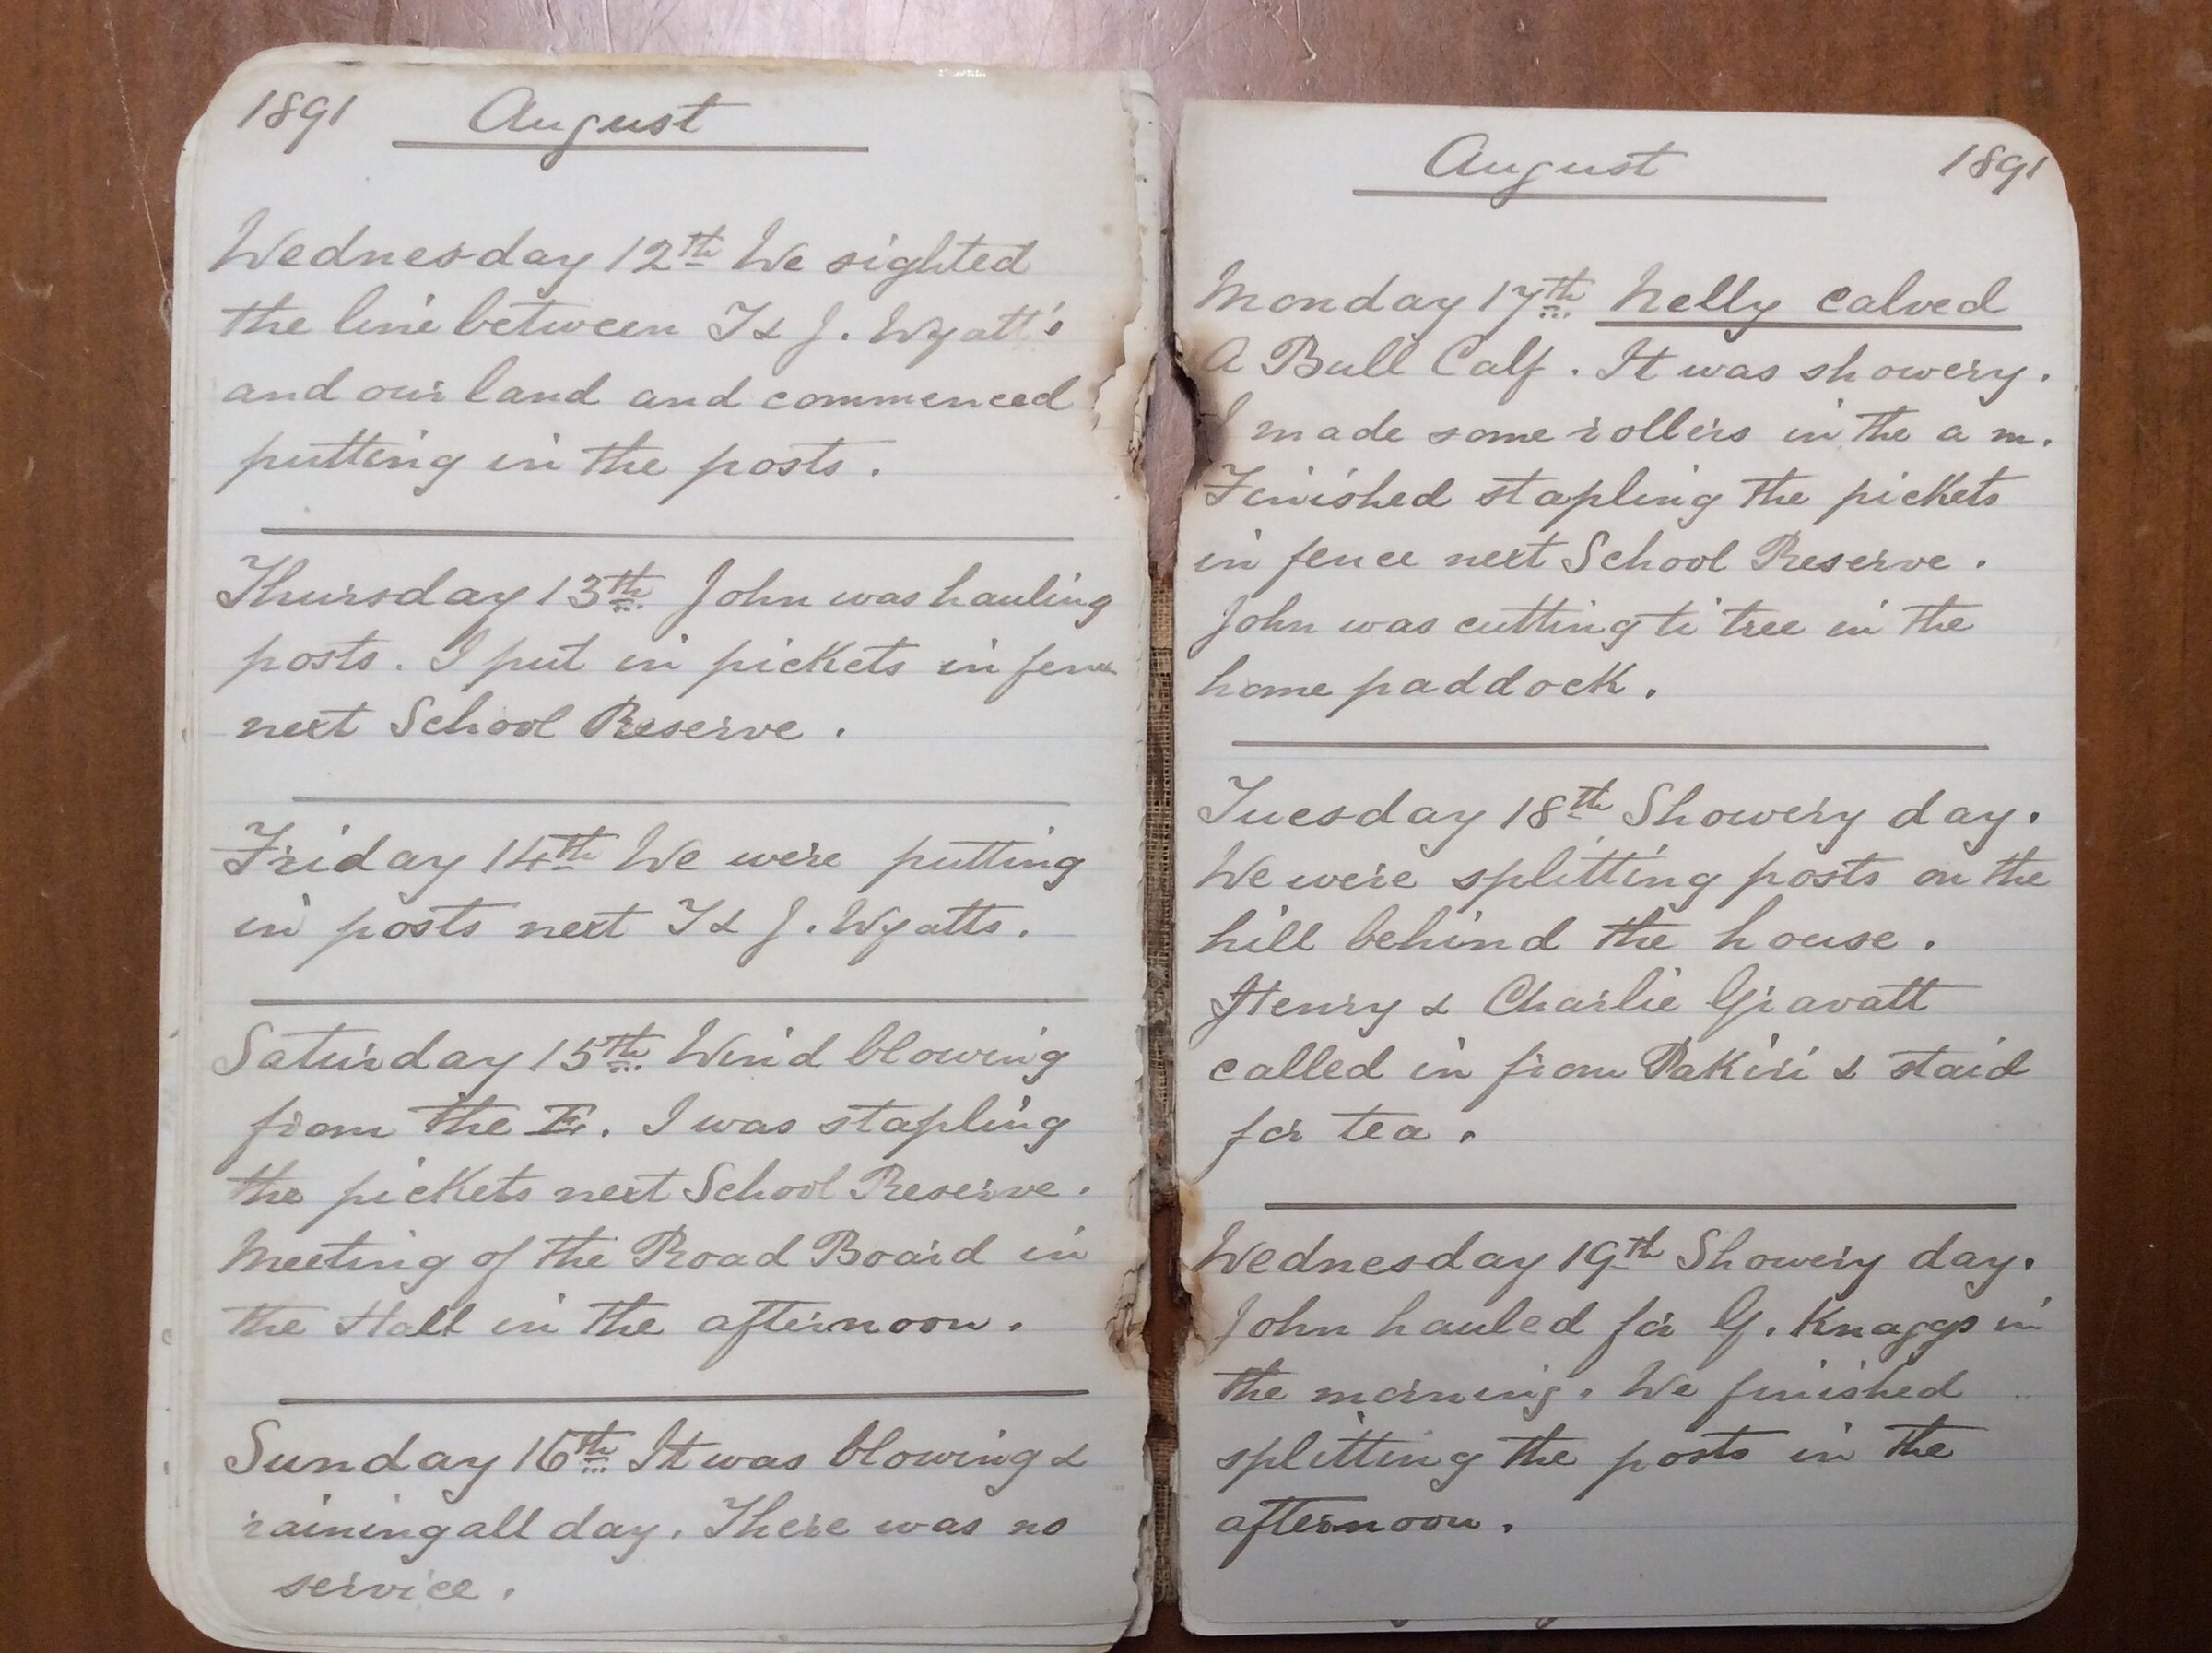 1891 August
Wednesday 12th We sighted
the line between T & J. Wyatt's
and our land and commenced
putting in the posts.
Thursday 13th John was hauling
posts. I put in pickets in fence
next School Reserve.
Friday 14th We were putting
in posts next T & J. Wyatts.
Saturday 15th Wind blowing
from the E. I was stapling
the pickets next School Reserve.
Meeting of the Road Board in
the Hall in the afternoon.
Sunday 16th It was blowing &
raining all day. There was no
service.
August 1891
Monday 17th Nelly calved
A Bull Calf. It was showery.
I made some rollers in the a m.
Finished stapling the pickets
in fence next School Reserve.
John was cutting ti tree in the
home paddock.
Tuesday 18th Showery day.
We were splitting posts on the
hill behind the house.
Henry & Charlie Gravatt
called in from Pakiri & staid
for tea.
Wednesday 19th Showery day.
John hauled for G. Knaggs in
the morning. We finished
splitting the posts in the
afternoon.